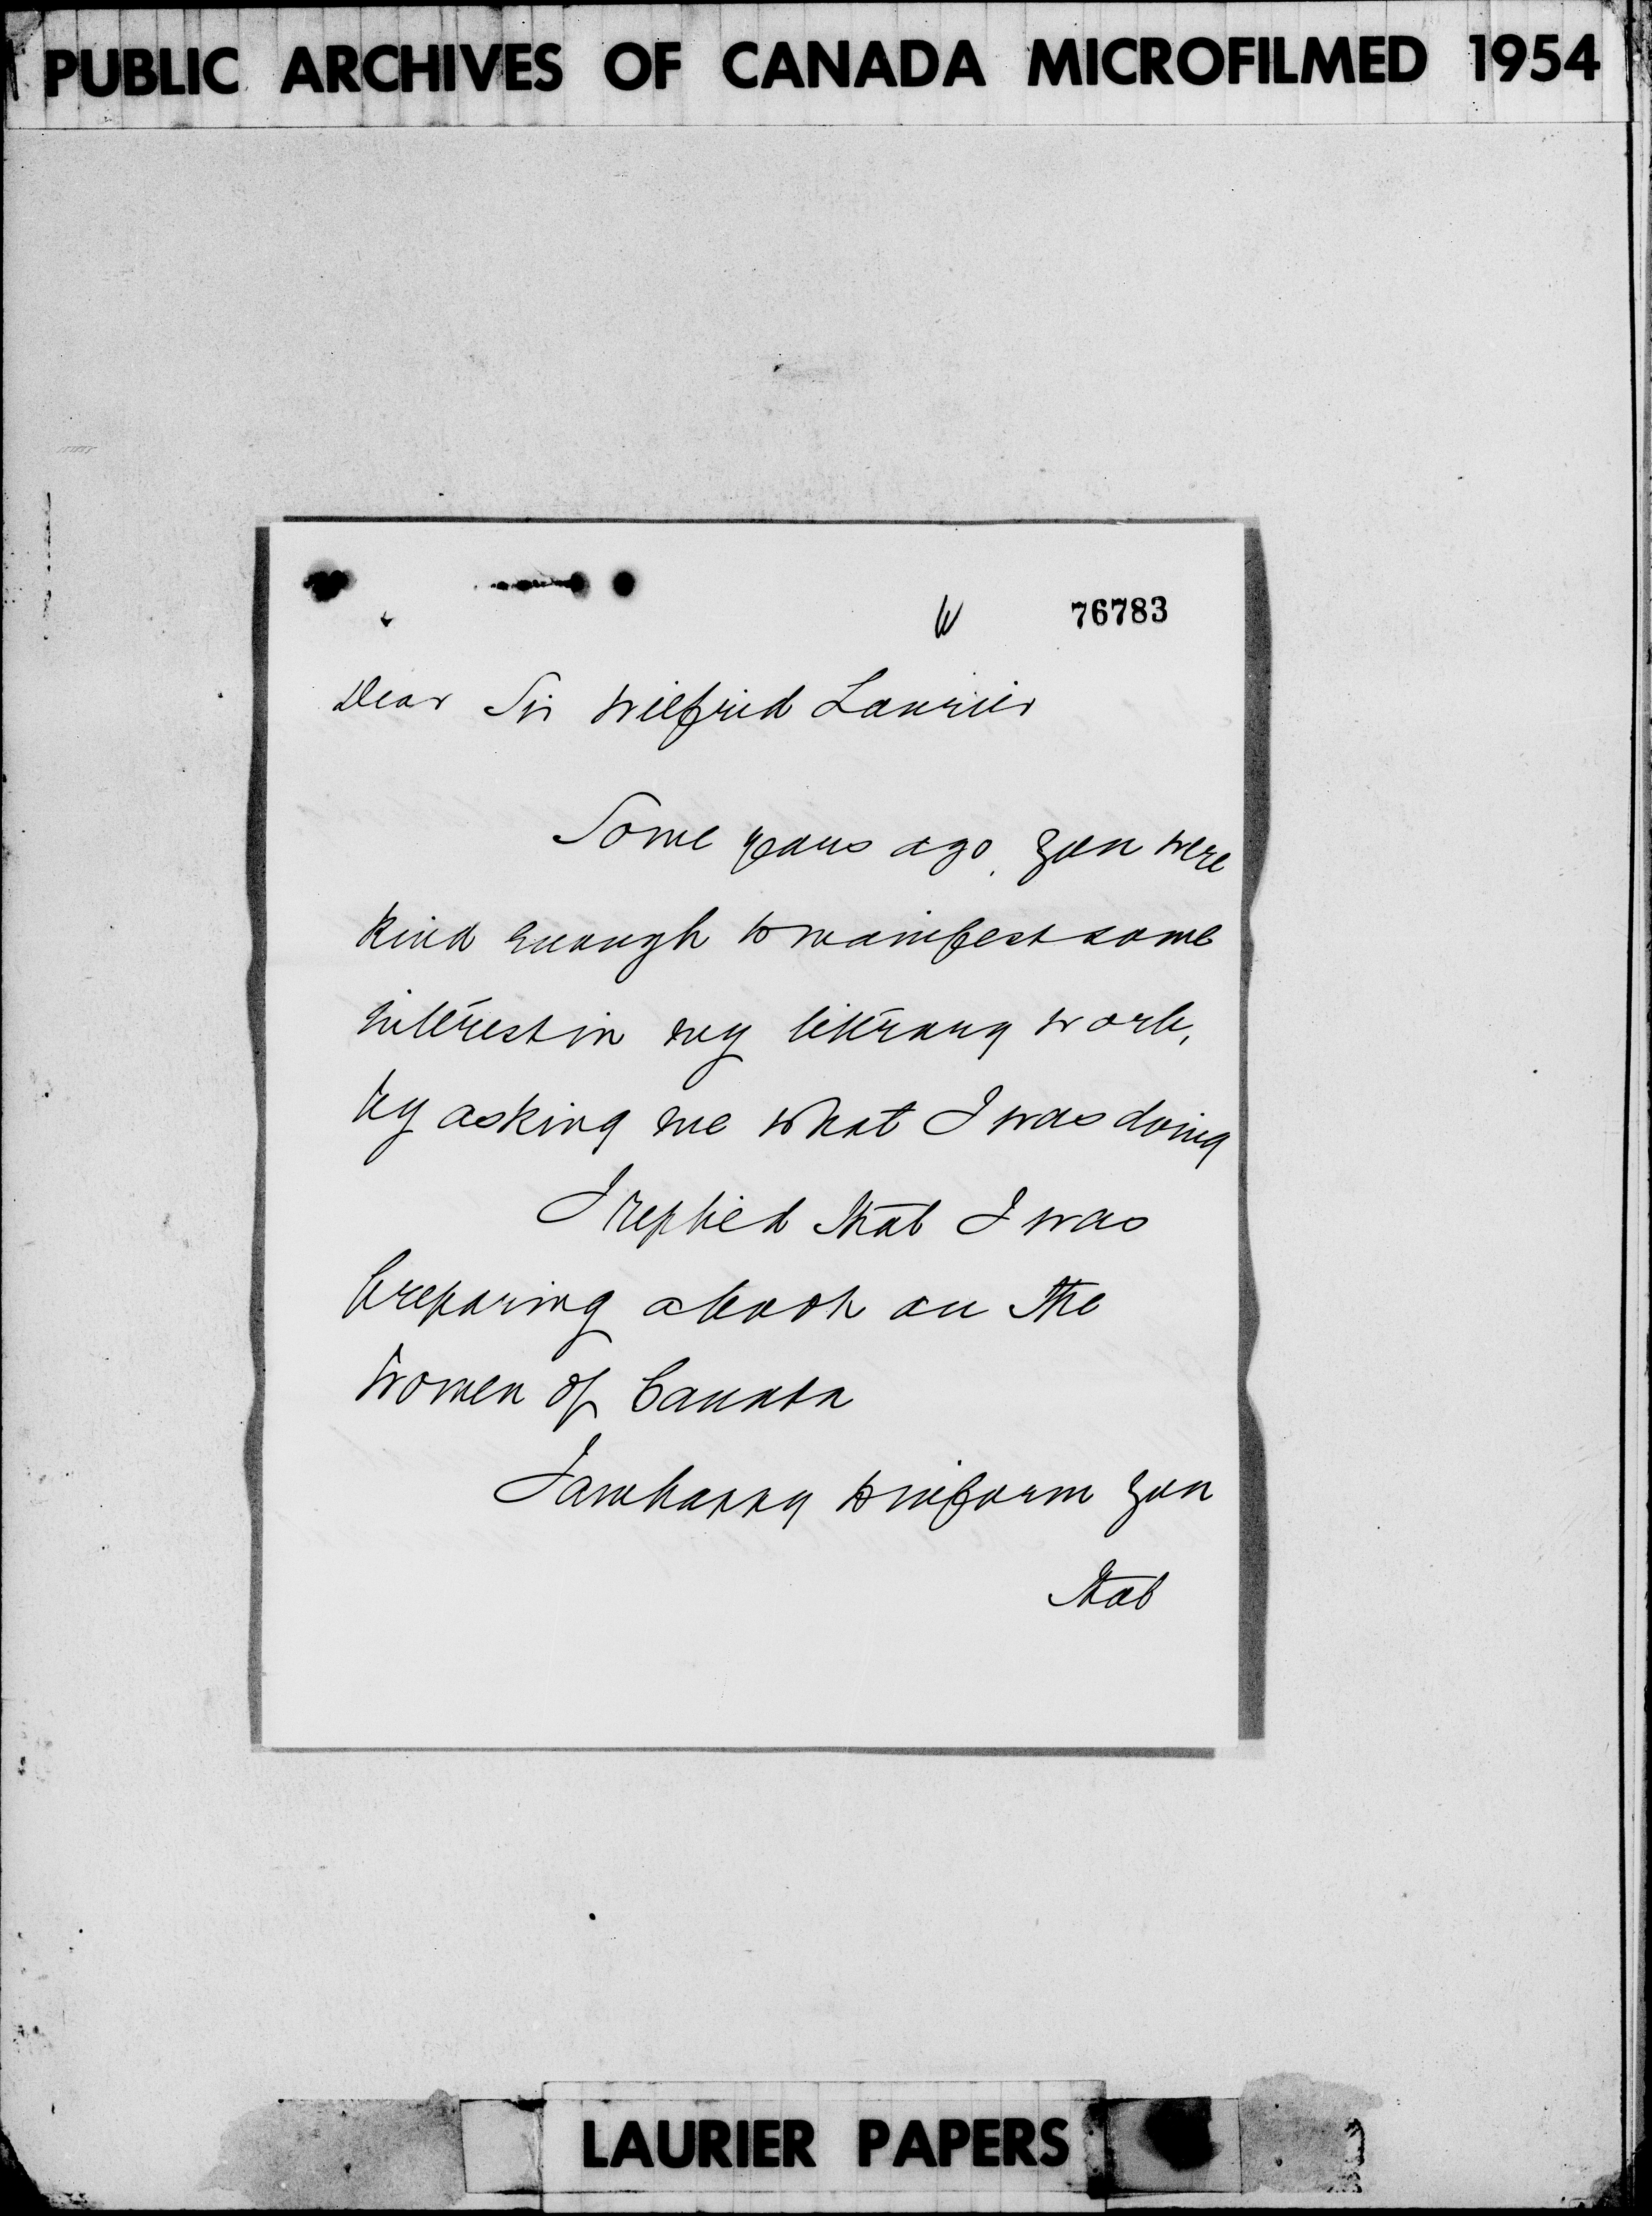 PUBLIC ARCHIVES OF CANADA MICROFILMED 1954
76783
Dear Sir Wilfrid Laurier
Some years ago, you were
kind enough to manifest some
interest in my literary work,
by asking me what I was doing
I replied that I was
preparing a book on the
Women of Canada
I am happy to inform you
that
LAURIER PAPERS